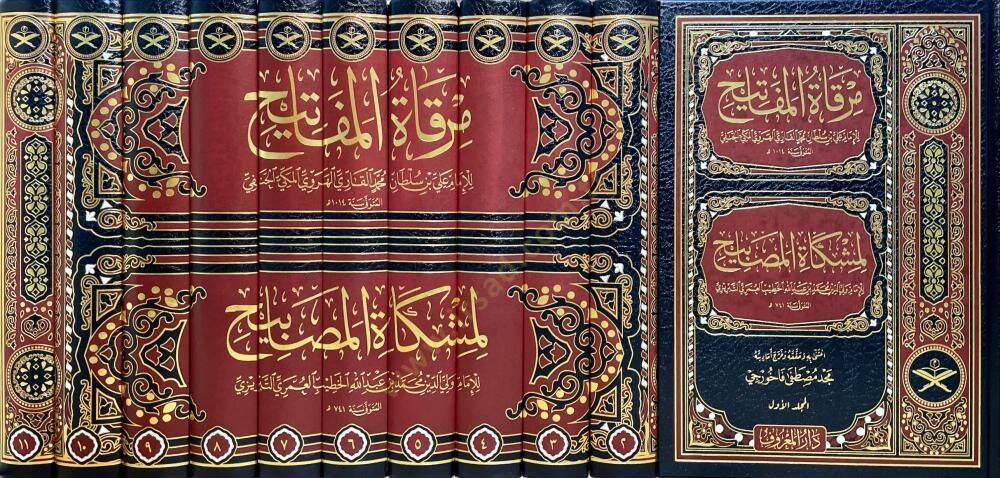 مرقاة المفاتيح
للإمام علي بن سلطان محمد القاري الهروي المكي الحنفي
المتوفى سنة ١٠١٤ هـ
لمشكاة المصابيح
للإمام ولي الدين محمد بن عبد الله الخطيب العمري التبريزي
المتوفى سنة ٧٤١ هـ
اعتنى به وحققه وخرج أحاديثه
مجد مصطفى فاخورجي
المجلد الأول
دار المعروف
مرقاة المفاتيح
للإمام علي بن سلطان محمد القاري الهروي المكي الحنفي
المتوفى سنة ١٠١٤هـ
لمشكاة المصابيح
للإمام ولي الدين محمد بن عبد الله الخطيب العمري التبريزي
المتوفى سنة ٧٤١ هـ
٢ ٣ ٤ ٥ ٦ ٧ ٨ ٩ ١٠ ١١